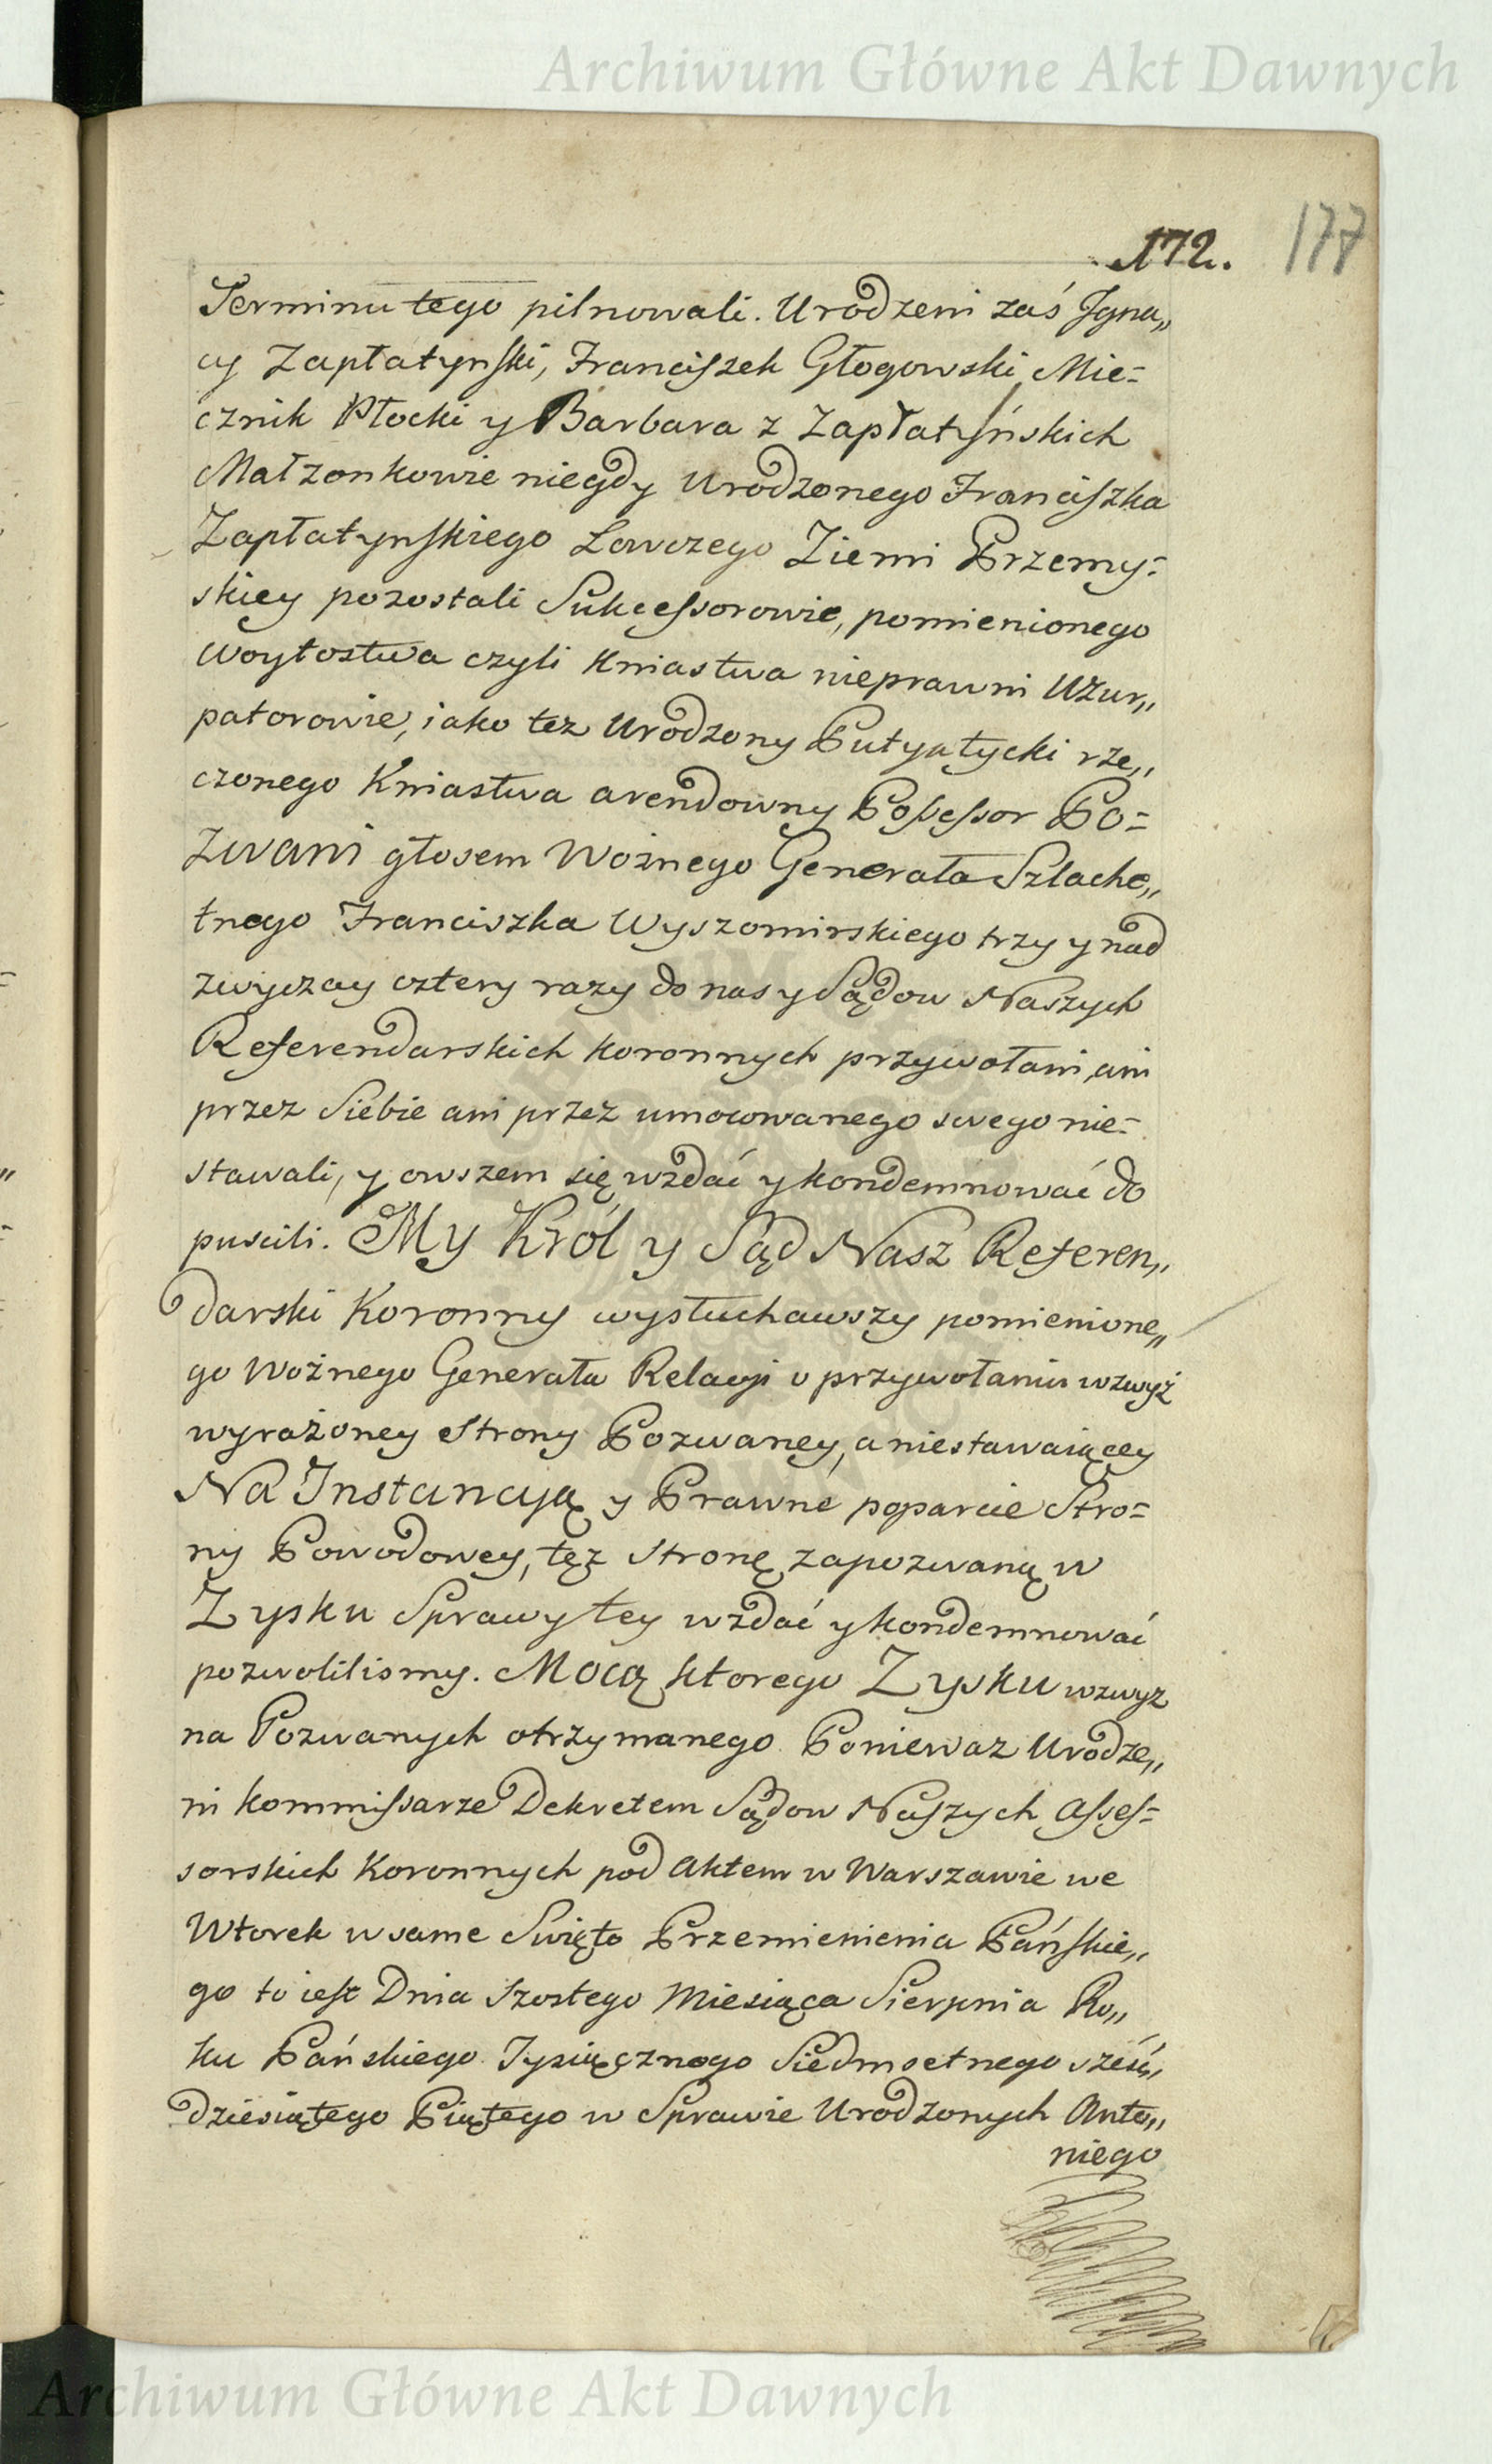 Archiwum Główne Akt Dawnych
172. 177
Terminu tego pilnowali. Urodzeni zaś Jgna„
cy Zapłatynski, Franciszek Głogowski Mie=
cznik Płocki y Barbara z Zapłatyńskich
Małzonkowie niegdy Urodzonego Franciszka
Zapłatynskiego Łowczego Ziemi Przemy=
skiey pozostali Sukcessorowie, pomienionego
Woytostwa czyli Kniastwa nieprawni Uzur„
patorowie, iako tez Urodzony Putyatycki rze„
czonego Kniastwa arendowny Possessor Po=
zwani głosem Woźnego Generała Szlache„
tnego Franciszka Wyszomirskiego trzy y nad
zwyczay cztery razy do nas y Sądow Naszych
Referendarskich Koronnych przywołani, ani
przez Siebie ani przez umocowanego swego nie=
stawali, y owszem się wzdać y kondemnować do
puscili. My Król y Sąd Nasz Referen„
darski Koronny wysłuchawszy pomienione„
go Woźnego Generała Relacyi o przywołaniu wzwyż
wyrażoney Strony Pozwaney, a niestawaiącey
Na Instancyą y Prawne poparcie Stro=
ny Powodowey, tęż Stronę zapozwaną w
Zysku Sprawy tey wzdać y kondemnować
pozwolilismy. Mocą ktorego Zysku wzwyz
na Pozwanych otrzymanego Poniewaz Urodze„
ni Kommissarze Dekretem Sądow Naszych Asses=
sorskich Koronnych pod Aktem w Warszawie we
Wtorek w same Swięto Przemienienia Pańskie„
go to iest Dnia Szostego Miesiąca Sierpnia Ro„
ku Pańskiego Tysiącznego Siedmsetnego sześć„
dziesiątego Piątego w Sprawie Urodzonych Anto„
niego
Archiwum Główne Akt Dawnych